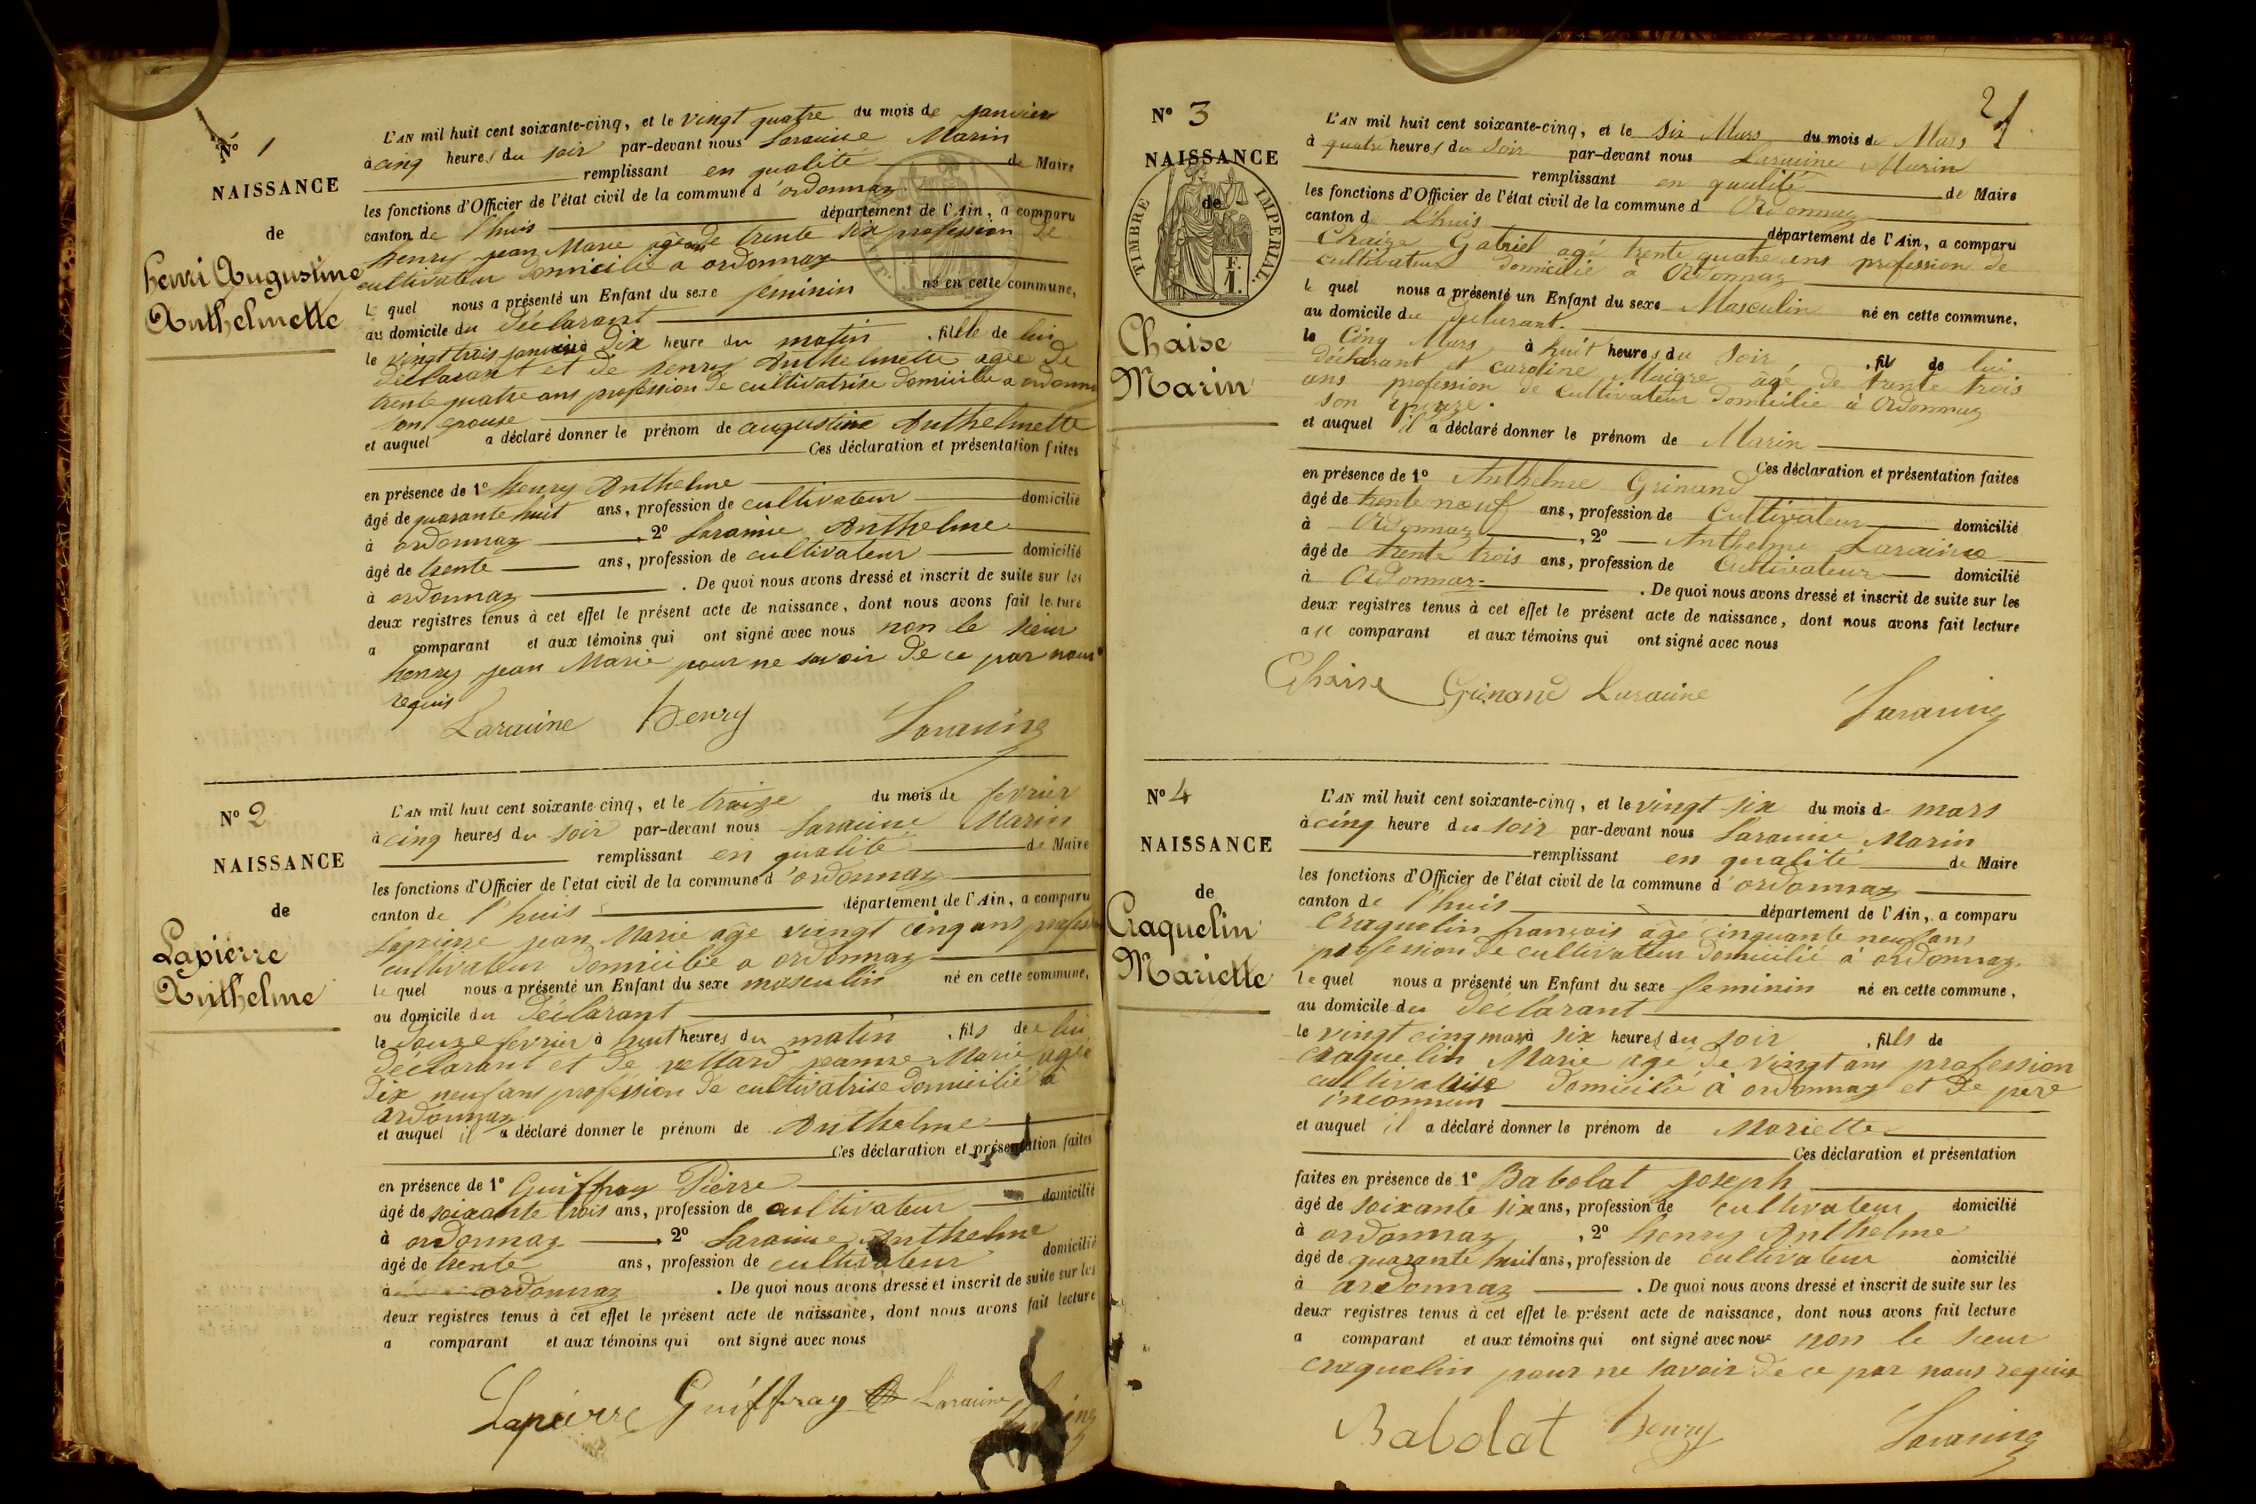 N° 1
NAISSANCE
de
henri Augustine
Anthelmette
L'AN mil huit cent soixante-cinq, et le vingt quatre du mois de janvier
à cinq heures du soir par-devant nous Laraüine Marin
remplissant en qualité de Maire
les fonctions d'Officier de l'état civil de la commune d'ordonnaz
canton de l'huis département de l'Ain, a comparu
henry jean Marie agé de trente six profession de
cultivateur domicilié a ordonnaz
le quel nous a présenté un Enfant du sexe feminin né en cette commune,
au domicile du déclarant
le vingt trois janvier à Dix heure du matin , fille de lui
déclarant et de henry Anthelmette agée de
trente quatre ans profession de cultivatrise domicilié a ordonnaz
son epouse
et auquel a déclaré donner le prénom de augustine Anthelmette
Ces déclaration et présentation faites
en présence de 1° henry Anthelme
âgé de quarante huit ans, profession de cultivateur domicilié
à ordonnaz , 2° Laraüine Anthelme
âgé de trente ans, profession de cultivateur domicilié
à ordonnaz . De quoi nous avons dressé et inscrit de suite sur les
deux registres tenus à cet effet le présent acte de naissance, dont nous avons fait lecture
a comparant et aux témoins qui ont signé avec nous non le sieur
henry jean Marie pour ne savoir de ce par nous
requis
Laraüine henry Laraüine
N° 2
NAISSANCE
de
Lapierre
Anthelme
L'AN mil huit cent soixante-cinq, et le traize du mois de fevrier
à cinq heures du soir par-devant nous Laraüine Marin
remplissant en qualité de Maire
les fonctions d'Officier de l'état civil de la commune d'ordonnaz
canton de l'huis département de l'Ain, a comparu
Lapierre jean Marie agé vingt cinq ans profession
cultivateur domicilié a ordonnaz
le quel nous a présenté un Enfant du sexe masculin né en cette commune,
au domicile du déclarant
le douze fevrier à huit heures du matin , fils de lui
déclarant et de vettard jeanne Marie agée
dix neuf ans profession de cultivatrise domicilié à
ordonnaz
et auquel il a déclaré donner le prénom de Anthelme
Ces déclaration et présentation faites
en présence de 1° Guiffray Pierre
âgé de soixante trois ans, profession de cultivateur domicilié
à ordonnaz , 2° Laraüine Anthelme
âgé de trente ans, profession de cultivateur domicilié
à ordonnaz . De quoi nous avons dressé et inscrit de suite sur les
deux registres tenus à cet effet le présent acte de naissance, dont nous avons fait lecture
a comparant et aux témoins qui ont signé avec nous
Lapierre Guiffray Laraüine
N° 3
NAISSANCE
de
TIMBRE IMPERIAL.
Chaise
Marin
L'AN mil huit cent soixante-cinq, et le six Mars du mois de Mars
à quatre heures du soir par-devant nous Laraüine Marin
remplissant en qualité de Maire
les fonctions d'Officier de l'état civil de la commune d Ordonnaz
canton de L'huis département de l'Ain, a comparu
Chaize Gabriel agé trente quatre ans profession de
cultivateur domicilié à Ordonnaz
le quel nous a présenté un Enfant du sexe Masculin né en cette commune,
au domicile du déclarant.
le Cinq Mars à huit heures du soir , fils de lui
déclarant et caroline Maigre agé de trente trois
ans profession de cultivateur domicilié à Ordonnaz
son épouze.
et auquel il a déclaré donner le prénom de Marin
Ces déclaration et présentation faites
en présence de 1° Anthelme Grinand
âgé de trente nœuf ans, profession de Cultivateur domicilié
à Ordonnaz , 2° Anthelme Laraüine
âgé de trente trois ans, profession de Cultivateur domicilié
à Ordonnaz . De quoi nous avons dressé et inscrit de suite sur les
deux registres tenus à cet effet le présent acte de naissance, dont nous avons fait lecture
au comparant et aux témoins qui ont signé avec nous
Chaise Grinand Laraüine Laraüine
N° 4
NAISSANCE
de
Craquelin
Mariette
L'AN mil huit cent soixante-cinq, et le vingt six du mois de mars
à cinq heure du soir par-devant nous Laraüine Marin
remplissant en qualité de Maire
les fonctions d'Officier de l'état civil de la commune d'ordonnaz
canton de l'huis département de l'Ain, a comparu
Craquelin françois agé cinquante neuf ans
profession de cultivateur domicilié à ordonnaz.
le quel nous a présenté un Enfant du sexe feminin né en cette commune,
au domicile du déclarant
le vingt cinq mars à six heures du soir , fils de
craquelin Marie agé de vingt ans profession
cultivatrise domicilié à ordonnaz et de père
inconnun
et auquel il a déclaré donner le prénom de Mariette
Ces déclaration et présentation
faites en présence de 1° Babolat joseph
âgé de soixante six ans, profession de cultivateur domicilié
à ordonnaz , 2° henry Anthelme
âgé de quarante huit ans, profession de cultivateur domicilié
à ordonnaz . De quoi nous avons dressé et inscrit de suite sur les
deux registres tenus à cet effet le présent acte de naissance, dont nous avons fait lecture
a comparant et aux témoins qui ont signé avec nous non le sieur
craquelin pour ne savoir de ce par nous requis
Babolat henry Laraüine